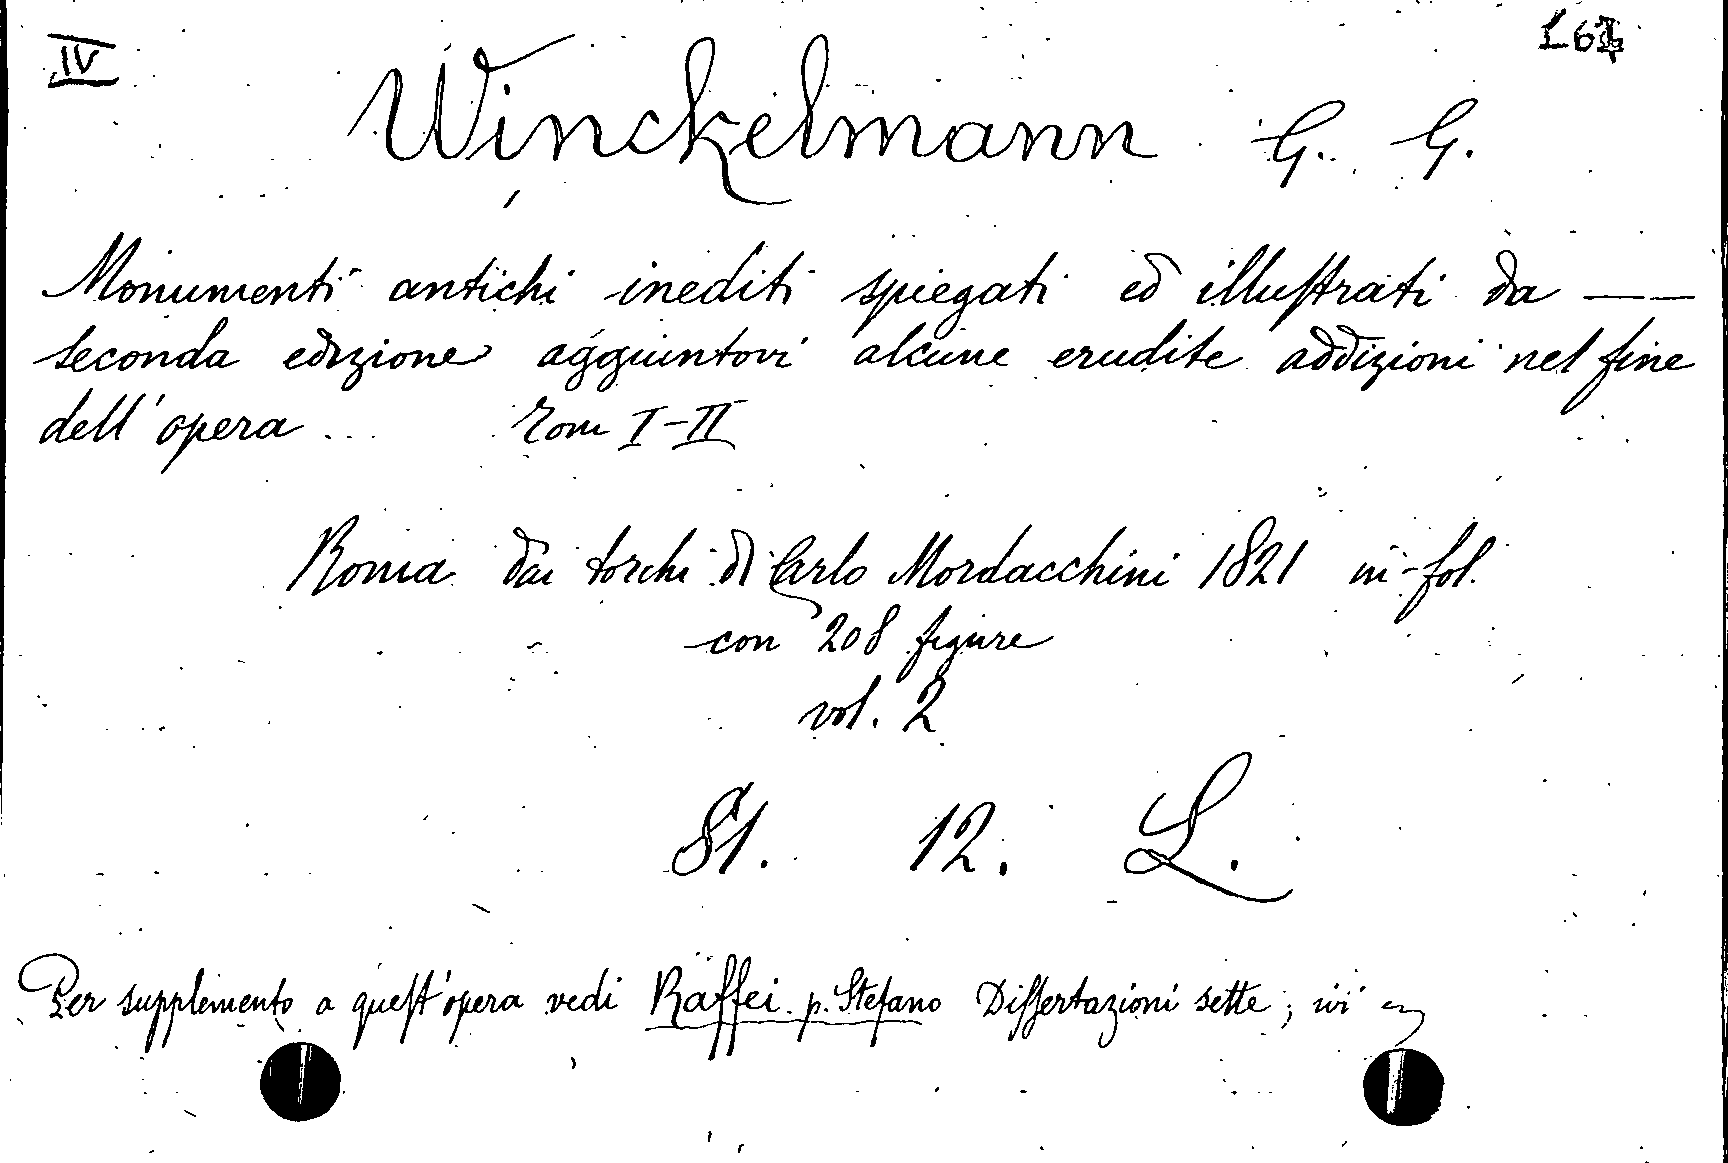 IV
Winckelmann G. G.
Monumenti antichi inediti spiegati ed illustrati da ——
seconda edizione aggiuntovi alcune erudite addizioni nel fine
dell'opera ... Tom I-II
Roma dai torchi di Carlo Mordacchini 1821 in-fol.
con 208 figure
vol. 2
81. 12. L.
Per supplemento a quest'opera vedi Raffei p. Stefano Dissertazioni sette; ivi